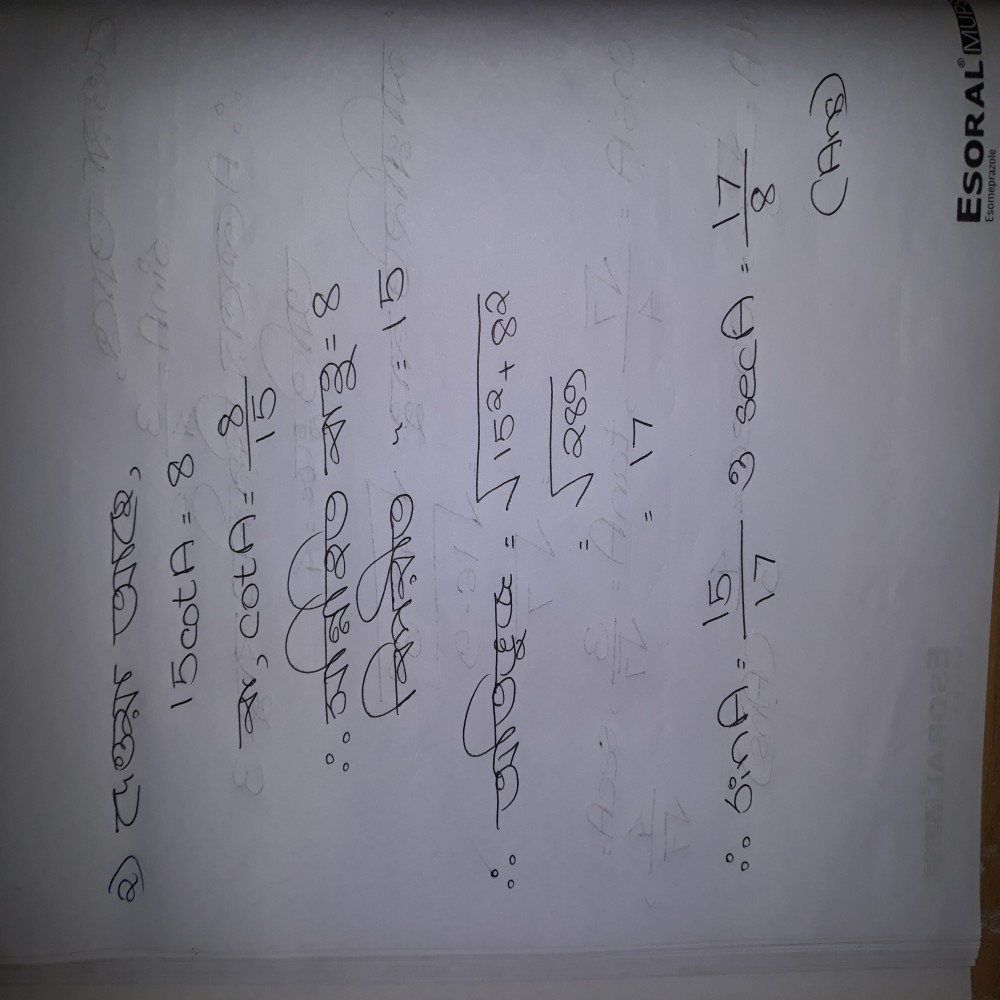 ২) দেওয়া আছে,
15cotA = 8
বা, cotA = 8/15
∴ সন্নিহিত বাহু = 8
বিপরীত " = 15
∴ অতিভুজ = √15² + 8²
= √289
= 17
∴ sinA = 15/17 ও secA = 17/8
(Ans)
ESORAL® MUPS
Esomeprazole